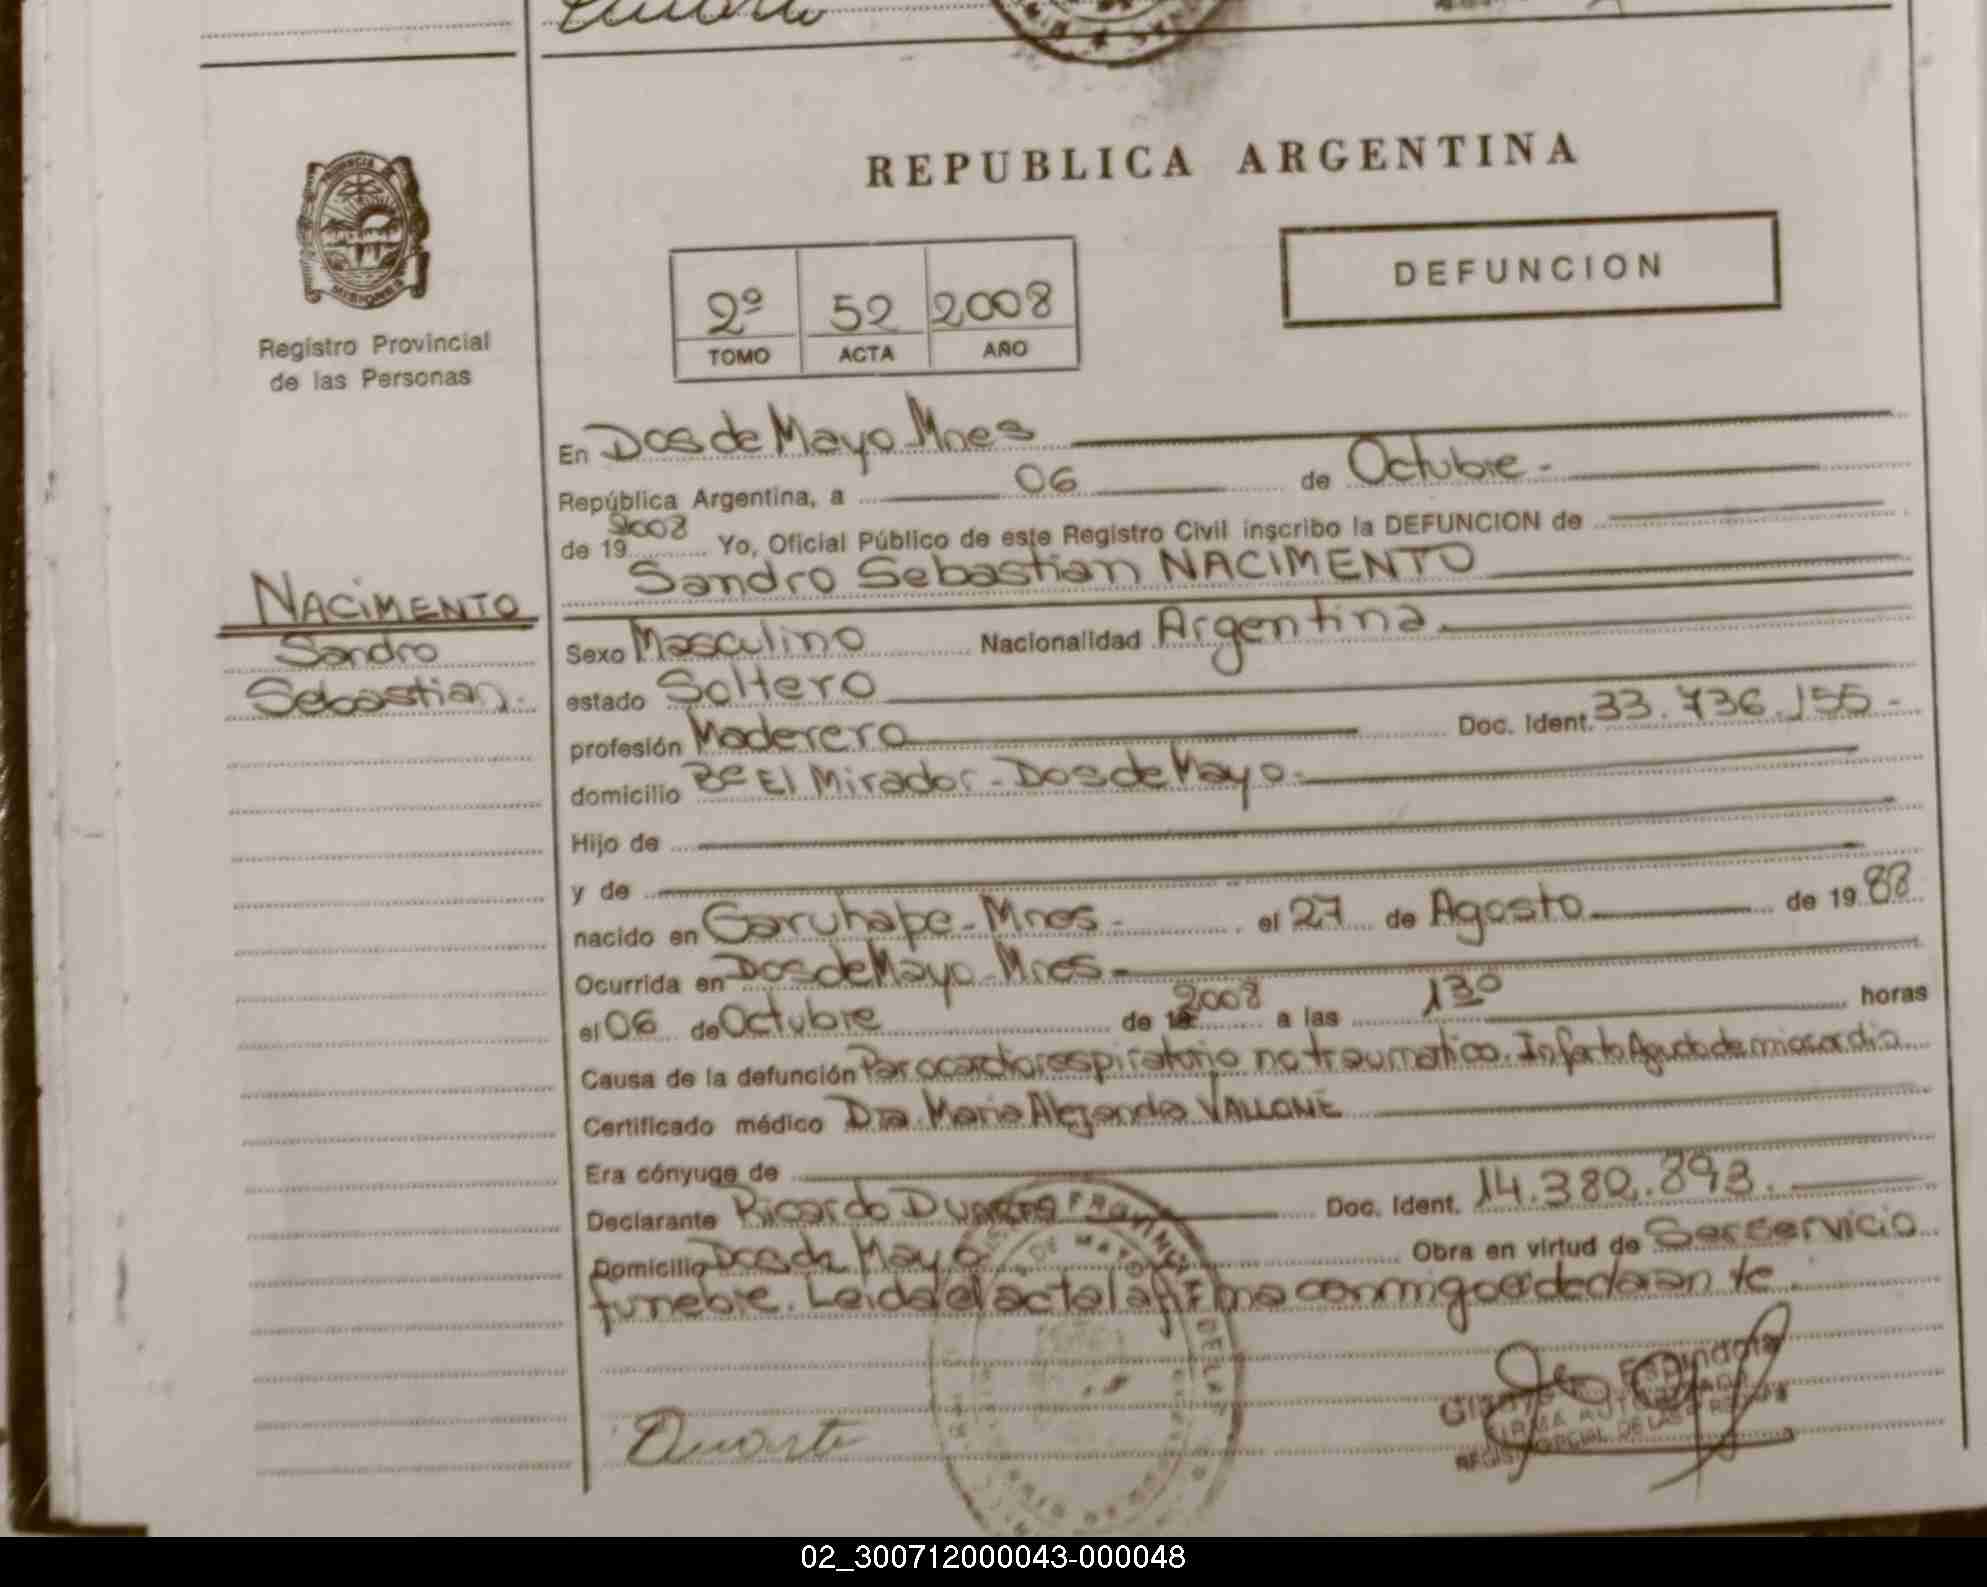 REPUBLICA ARGENTINA
DEFUNCION
2º 52 2008
TOMO ACTA AÑO
Registro Provincial
de las Personas
En Dos de Mayo Mnes
República Argentina, a 06 de Octubre.-
de 19 2008 Yo, Oficial Público de este Registro Civil inscribo la DEFUNCION de
Sandro Sebastian NACIMENTO
NACIMENTO
Sandro
Sebastian.
Sexo Masculino Nacionalidad Argentina.
estado Soltero
profesión Maderero Doc. Ident. 33.736.155.-
domicilio Bº El Mirador - Dos de Mayo.
Hijo de
y de
nacido en Garuhape - Mnes.- el 27 de Agosto de 19 88
Ocurrida en Dos de Mayo - Mnes.-
el 06 de Octubre de 2008 a las 13º horas
Causa de la defunción Parocardiorespiratorio no traumatico. Infarto Agudo de miocardio
Certificado médico Dra. Maria Alejandra VALLONE
Era cónyuge de
Declarante Ricardo Duarte Doc. Ident. 14.380.893.
Domicilio Dos de Mayo Obra en virtud de Ser servicio
funebre. Leida el acta la firma conmigo el declarante.
Duarte
Espindola
02_300712000043-000048